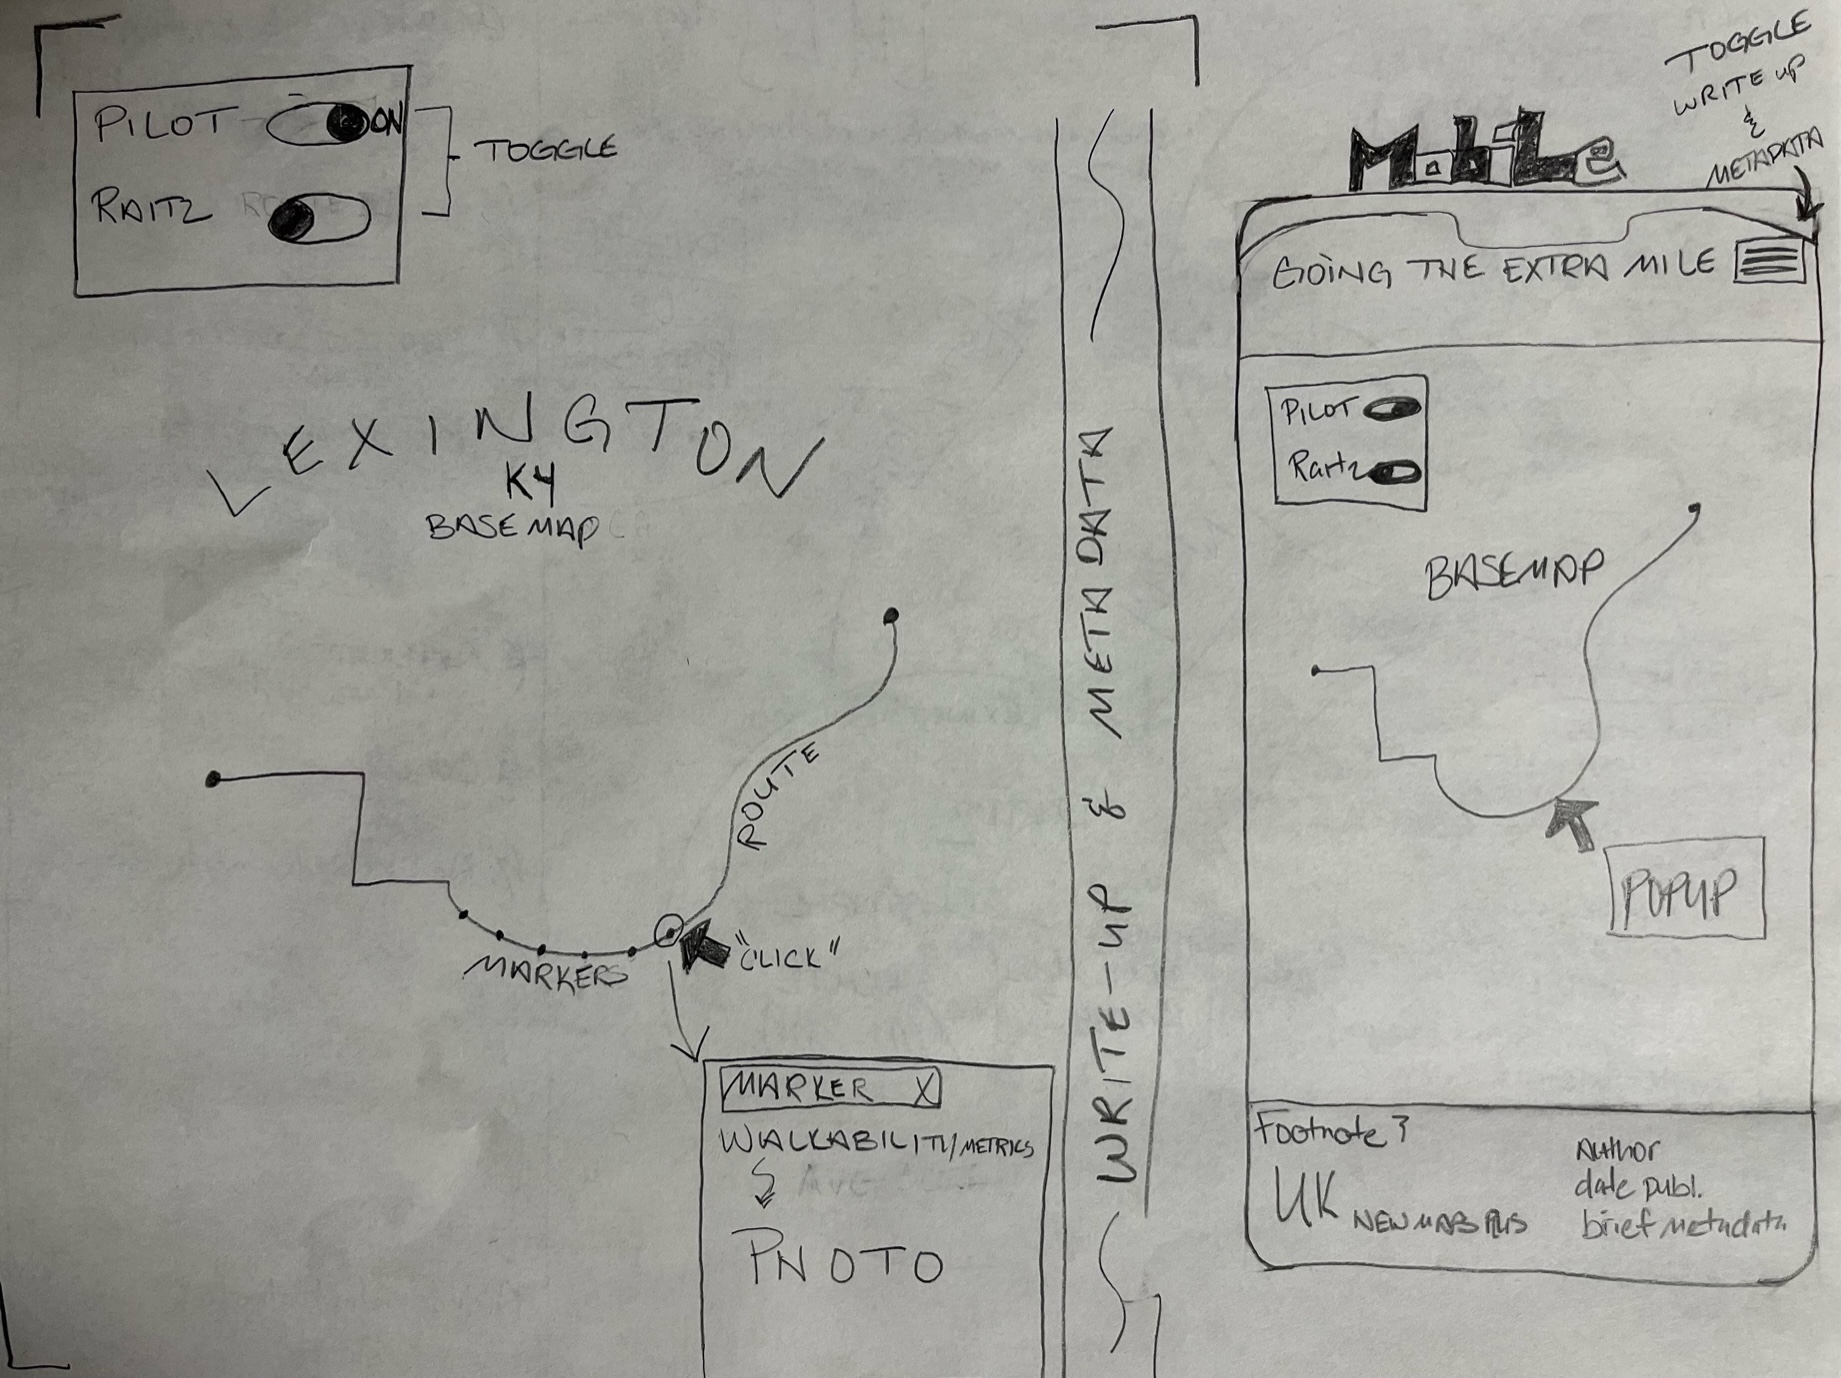 PILOT
ON
RAITZ
TOGGLE
LEXINGTON
KY
BASEMAP
ROUTE
MARKERS
"CLICK"
MARKER X
WALKABILITY/METRICS
PHOTO
WRITE-UP & METADATA
MOBiLe
TOGGLE
WRITE UP
&
METADATA
GOING THE EXTRA MILE
PILOT
Raitz
BASEMAP
POPUP
Footnote?
UK NEWMAPSPLUS
Author
date publ.
brief metadata